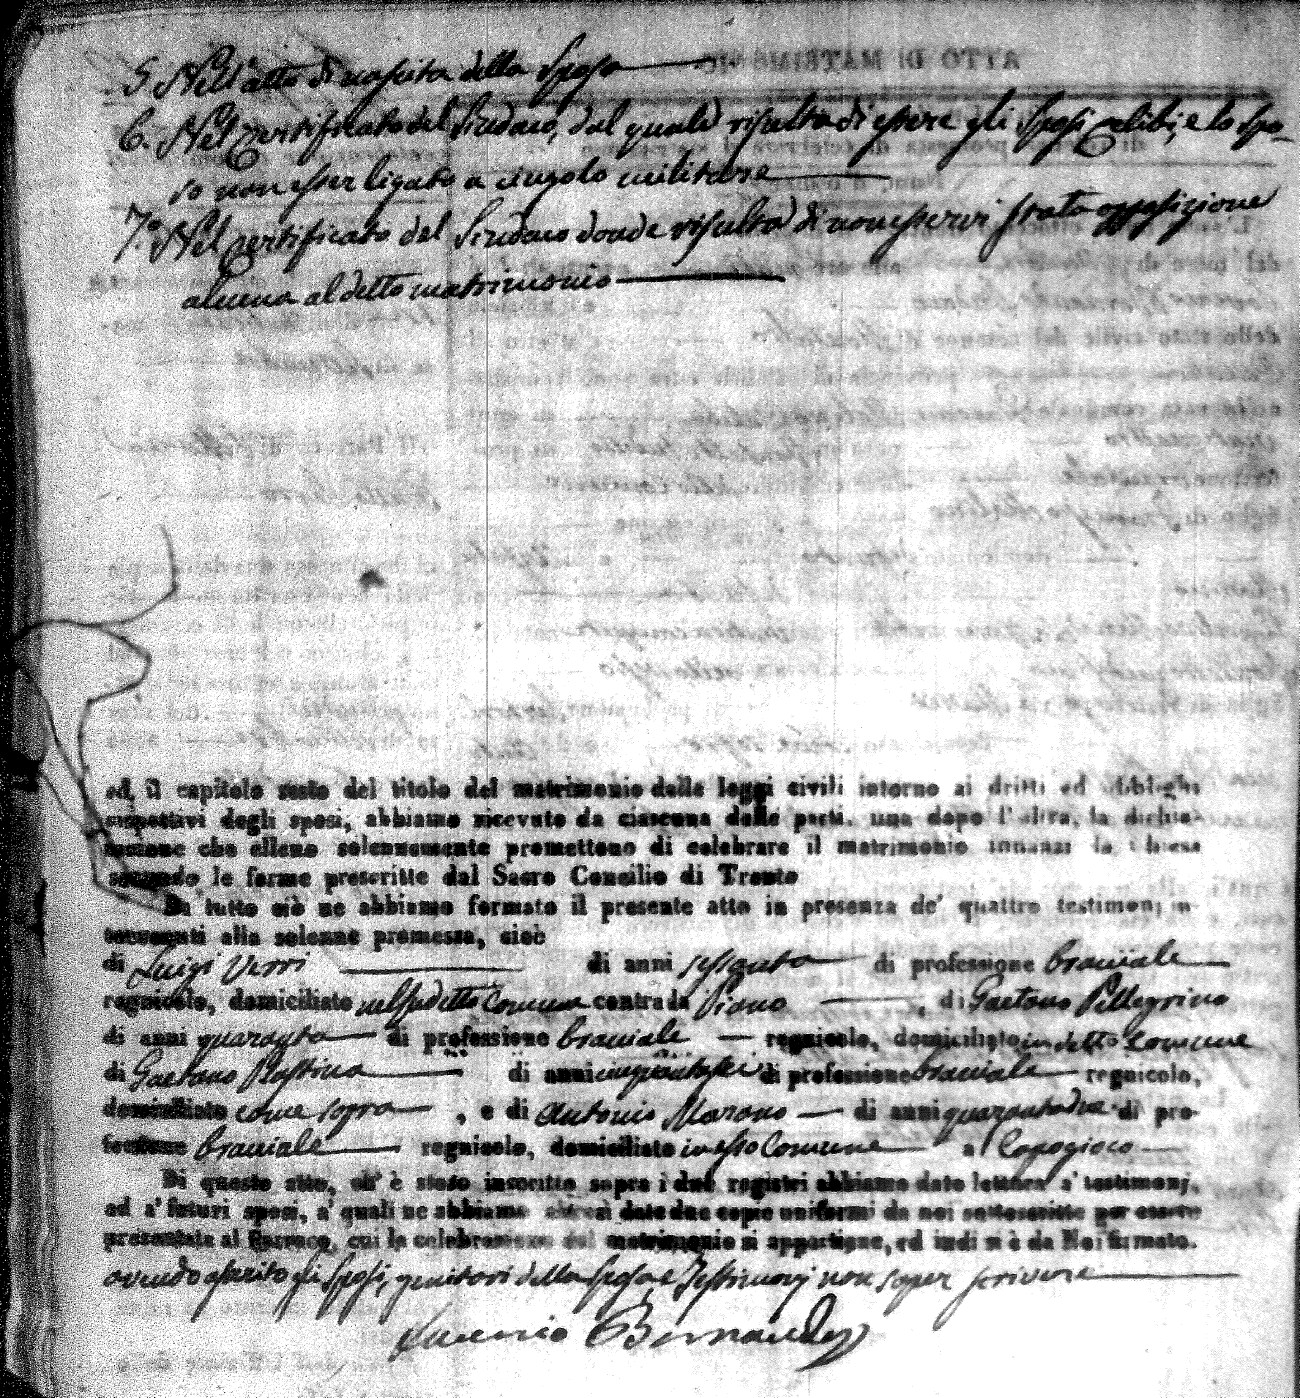 5. Nell'atto di nascita della Sposa
6. Nel certificato del Sindaco, dal quale risulta di essere gli Sposi celibi, e lo Spo-
so non esser ligato a cingolo militare
7.° Nel certificato del Sindaco donde risulta di non esservi stata opposizione
alcuna al detto matrimonio
ed il capitolo sesto del titolo del matrimonio delle leggi civili intorno ai dritti ed obblighi
rispettivi degli sposi, abbiamo ricevuto da ciascuna delle parti, una dopo l'altra, la dichia-
razione che elleno solennemente promettono di celebrare il matrimonio innanzi la Chiesa
secondo le forme prescritte dal Sacro Concilio di Trento
Di tutto ciò ne abbiamo formato il presente atto in presenza de' quattro testimonj in-
tervenuti alla solenne promessa, cioè
di Luigi Verri di anni sessanta di professione bracciale
regnicolo, domiciliato nel sudetto Comune contrada Piano, di Gaetano Pellegrino
di anni quaranta di professione bracciale regnicolo, domiciliato in detto Comune
di Gaetano di anni cinquantasei di professione bracciale regnicolo,
domiciliato come sopra, e di Antonio Marano di anni quarantadue di pro-
fessione bracciale regnicolo, domiciliato in esso Comune a Capogioco
Di questo atto, ch' è stato inscritto sopra i due registri abbiamo dato lettura a' testimonj,
ed a' futuri sposi, a' quali ne abbiamo altresì date due copie uniformi da noi sottoscritte per essere
presentate al Parroco, cui la celebrazione del matrimonio si appartiene, ed indi si è da Noi firmato.
avendo asserito gli Sposi, genitori della sposa e Testimonj non saper scrivere
Bernaudo